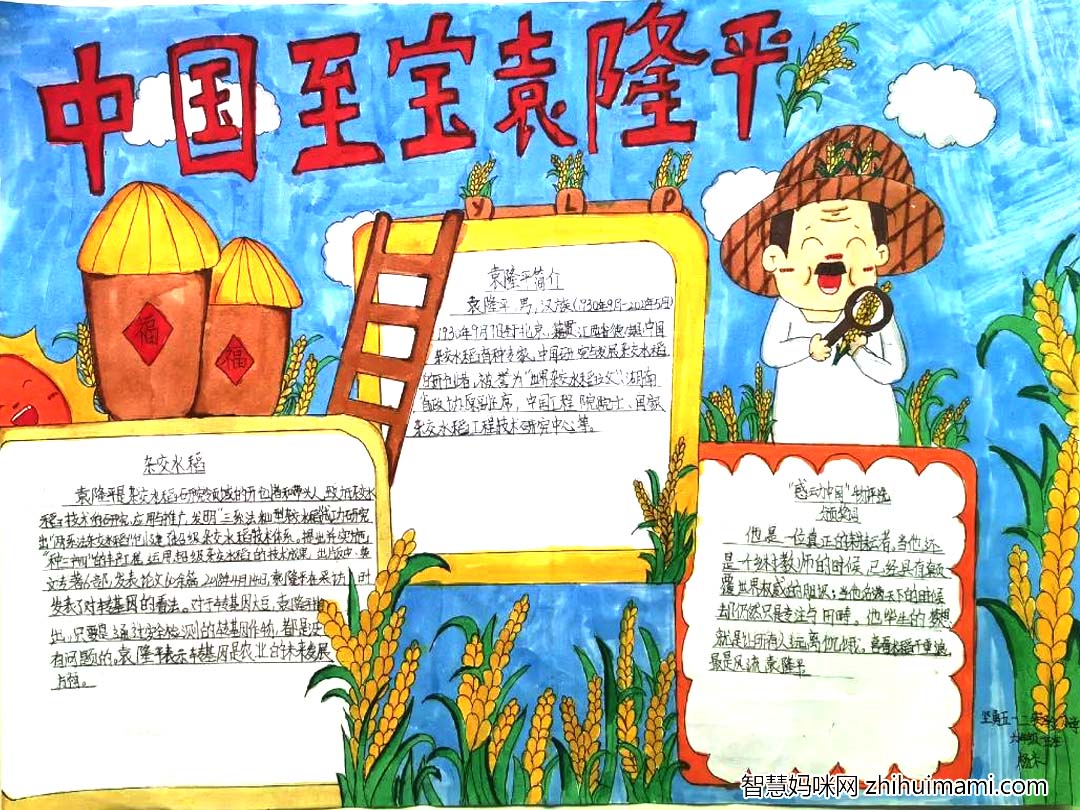 中国至宝袁隆平
Y L P
福
福
袁隆平简介
袁隆平,男,汉族(1930年9月-2021年5月)
1930年9月7日生于北京,籍贯江西省德安县,中国
杂交水稻育种专家,中国研究与发展杂交水稻
的开创者,被誉为"世界杂交水稻之父",湖南
省政协原副主席,中国工程院院士、国家
杂交水稻工程技术研究中心等。
杂交水稻
袁隆平是杂交水稻研究领域的开创者和带头人,致力杂交水
稻技术的研究,应用与推广,发明"三系法籼型杂交水稻成功研究
出"两系法杂交水稻"创建了超级杂交水稻技术体系。提出并实施
"种三产四"的丰产工程,运用超级杂交水稻的技术成果,出版中、英
文专著6部,发表论文60余篇,2018年4月14日,袁隆平在采访时
发表了对转基因的看法。对于转基因大豆,袁隆平指
出,只要是通过安全检测的转基因作物,都是没
有问题的。袁隆平表示转基因是农业的未来发展
方向。
"感动中国"物评选
颁奖词
他是一位真正的耕耘者,当他还
是一个乡村教师的时候,已经具有颠
覆世界权威的胆识;当他名满天下的时候
却仍然只是专注与田畴。他毕生的梦想
就是让所有人远离饥饿。喜看稻千重浪
最是风流袁隆平
六年级
智慧妈咪网 zhihuimami.com